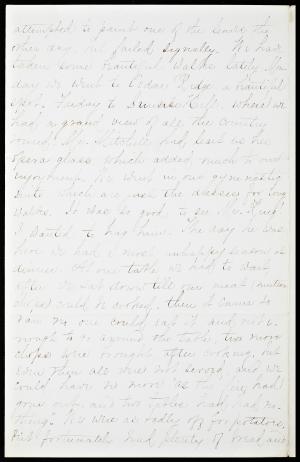 attempted to paint one of the heads the
other day, but failed signally. We have
taken some beautiful walks lately. Mon
day we went to Cedar Ridge, a beautiful
spot. Tuesday to where we
had a grand view of all the country
round. Mr. Mitchell had lent us his
opera glass which added much to our
enjoyment. We went in our gymnastic
suits which are just the dresses for long
walks. It was so good to see Mr. King!
I wanted to hug him. The day he was
here we had a most unhappy season at
dinner. At our table we had to wait
after we sat down till our meat (mutton
chops) could be cooked, then it came so
raw no one could eat it and not e-
nough to go around the table, two more
chops were brought after cooking, but
even then all were not served, and we
could have no more "as the fire had
gone out, and two tables had had no-
thing". We were as badly off for potatoes,
But fortunately had plenty of bread and